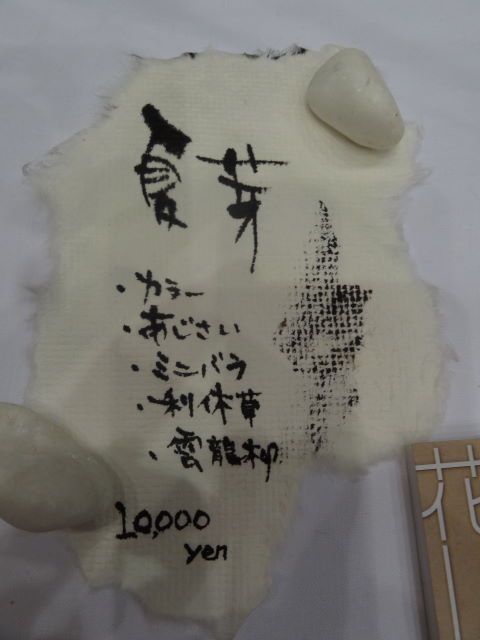 夏芽
・カラー
・あじさい
・ミニバラ
・利休草
・雲龍柳
10,000
yen
花